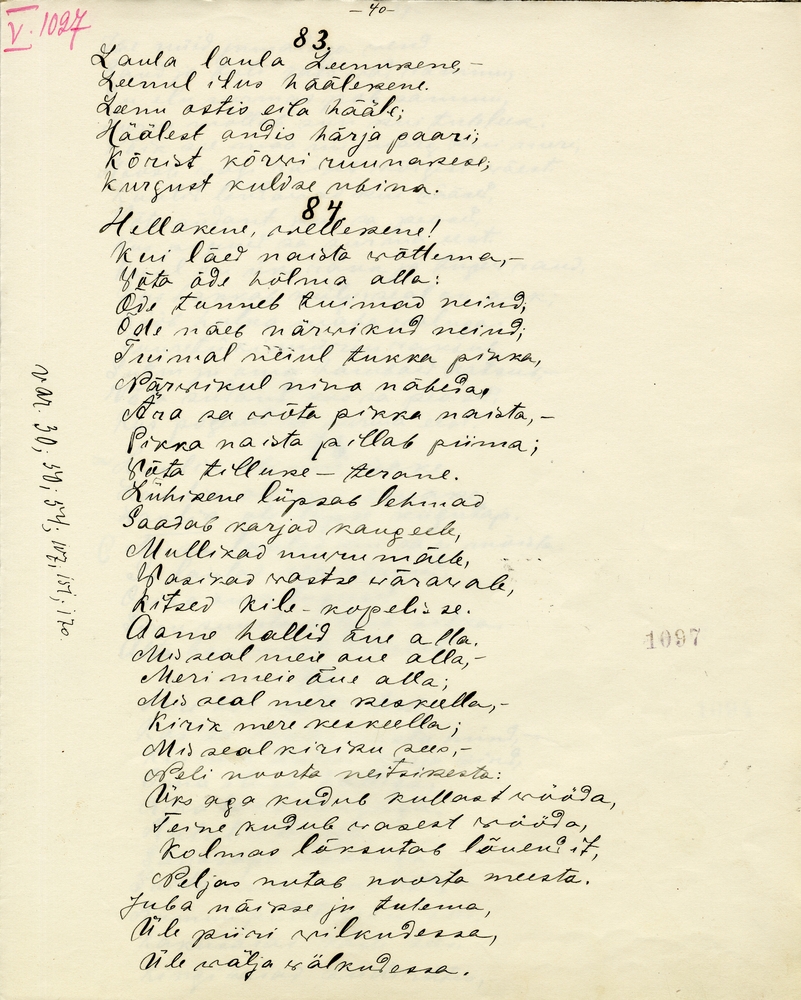 — 40 —
V. 1097
83.
Laula laula Leenukene, –
Leenul ilus häälekene.
Leenu ostis eila hääle;
Häälest andis härja paari;
Kõrist kõrwi ruunakese;
Kurgust kuldse ubina.
84.
Hellakene, wellekene!
Kui läed naista wõttema, –
Võta õde hõlma alla:
Õde tunneb tuimad neiud;
Õde näeb närwikud neiud;
Tuimal neiul tukka pikka,
Närwikul nina nåbeda,
Ära sa wõta pikka naista, –
Pikka naista pillab piima;
Võta tilluke – terane.
Lühikene lüpsab lehmad
Saadab karjad kaugeele,
Mullikad murumäele,
Wasikad wastse wärawale,
Kitsed kile-kopelisse.
Aame hallid õue alla.
Mis seal meie õue alla, –
Meri meie õue alla;
Mis seal mere keskeella, –
Kirik mere keskeella;
Mis seal kiriku sees, –
Neli noorta neitsikesta:
Üks aga kudub kullast wööda,
Teine kudub wasest wööda,
Kolmas lõksutab lõuendit,
Neljas nutab noorta meesta.
Juba näikse ju tulema,
Üle piiri wilkudessa,
Üle wälja wälkudessa.
var. 30; 50; 54; 107; 151; 170.
1097